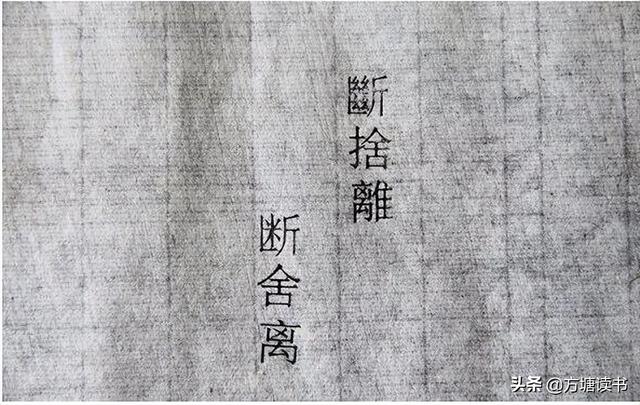 斷捨離
断舍离
头条 @方塘读书